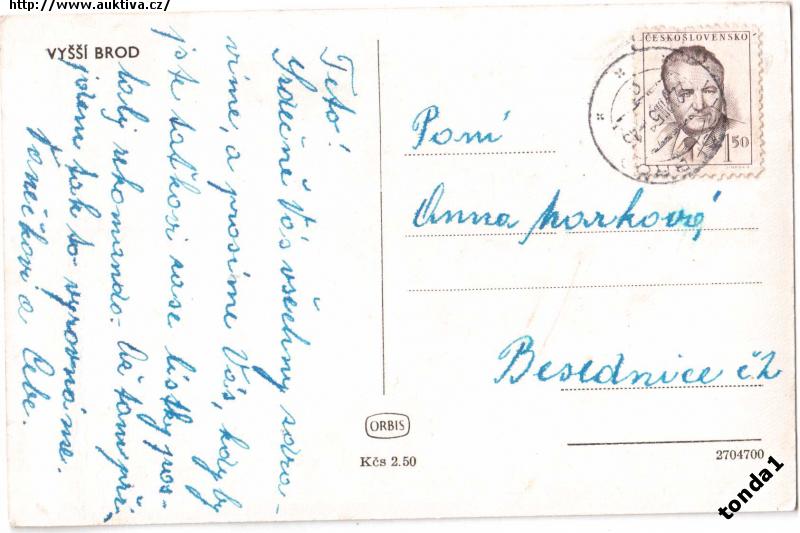 http://www.auktiva.cz/
VYŠŠÍ BROD
Teto!
Srdečně Vás všechny zdra-
víme, a prosíme Vás, kdyby
jste taťkovi zase lístky pos-
taly rekomando. Až tam při
jedem tak to vyrovnáme.
Vaněčkovi a
ČESKOSLOVENSKO
1 50
Paní
Anna Markové,
Besednice č. 2
ORBIS
Kčs 2.50
2704700
tonda1